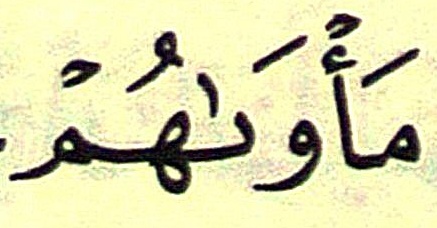 مَأۡوَىٰهُمۡ